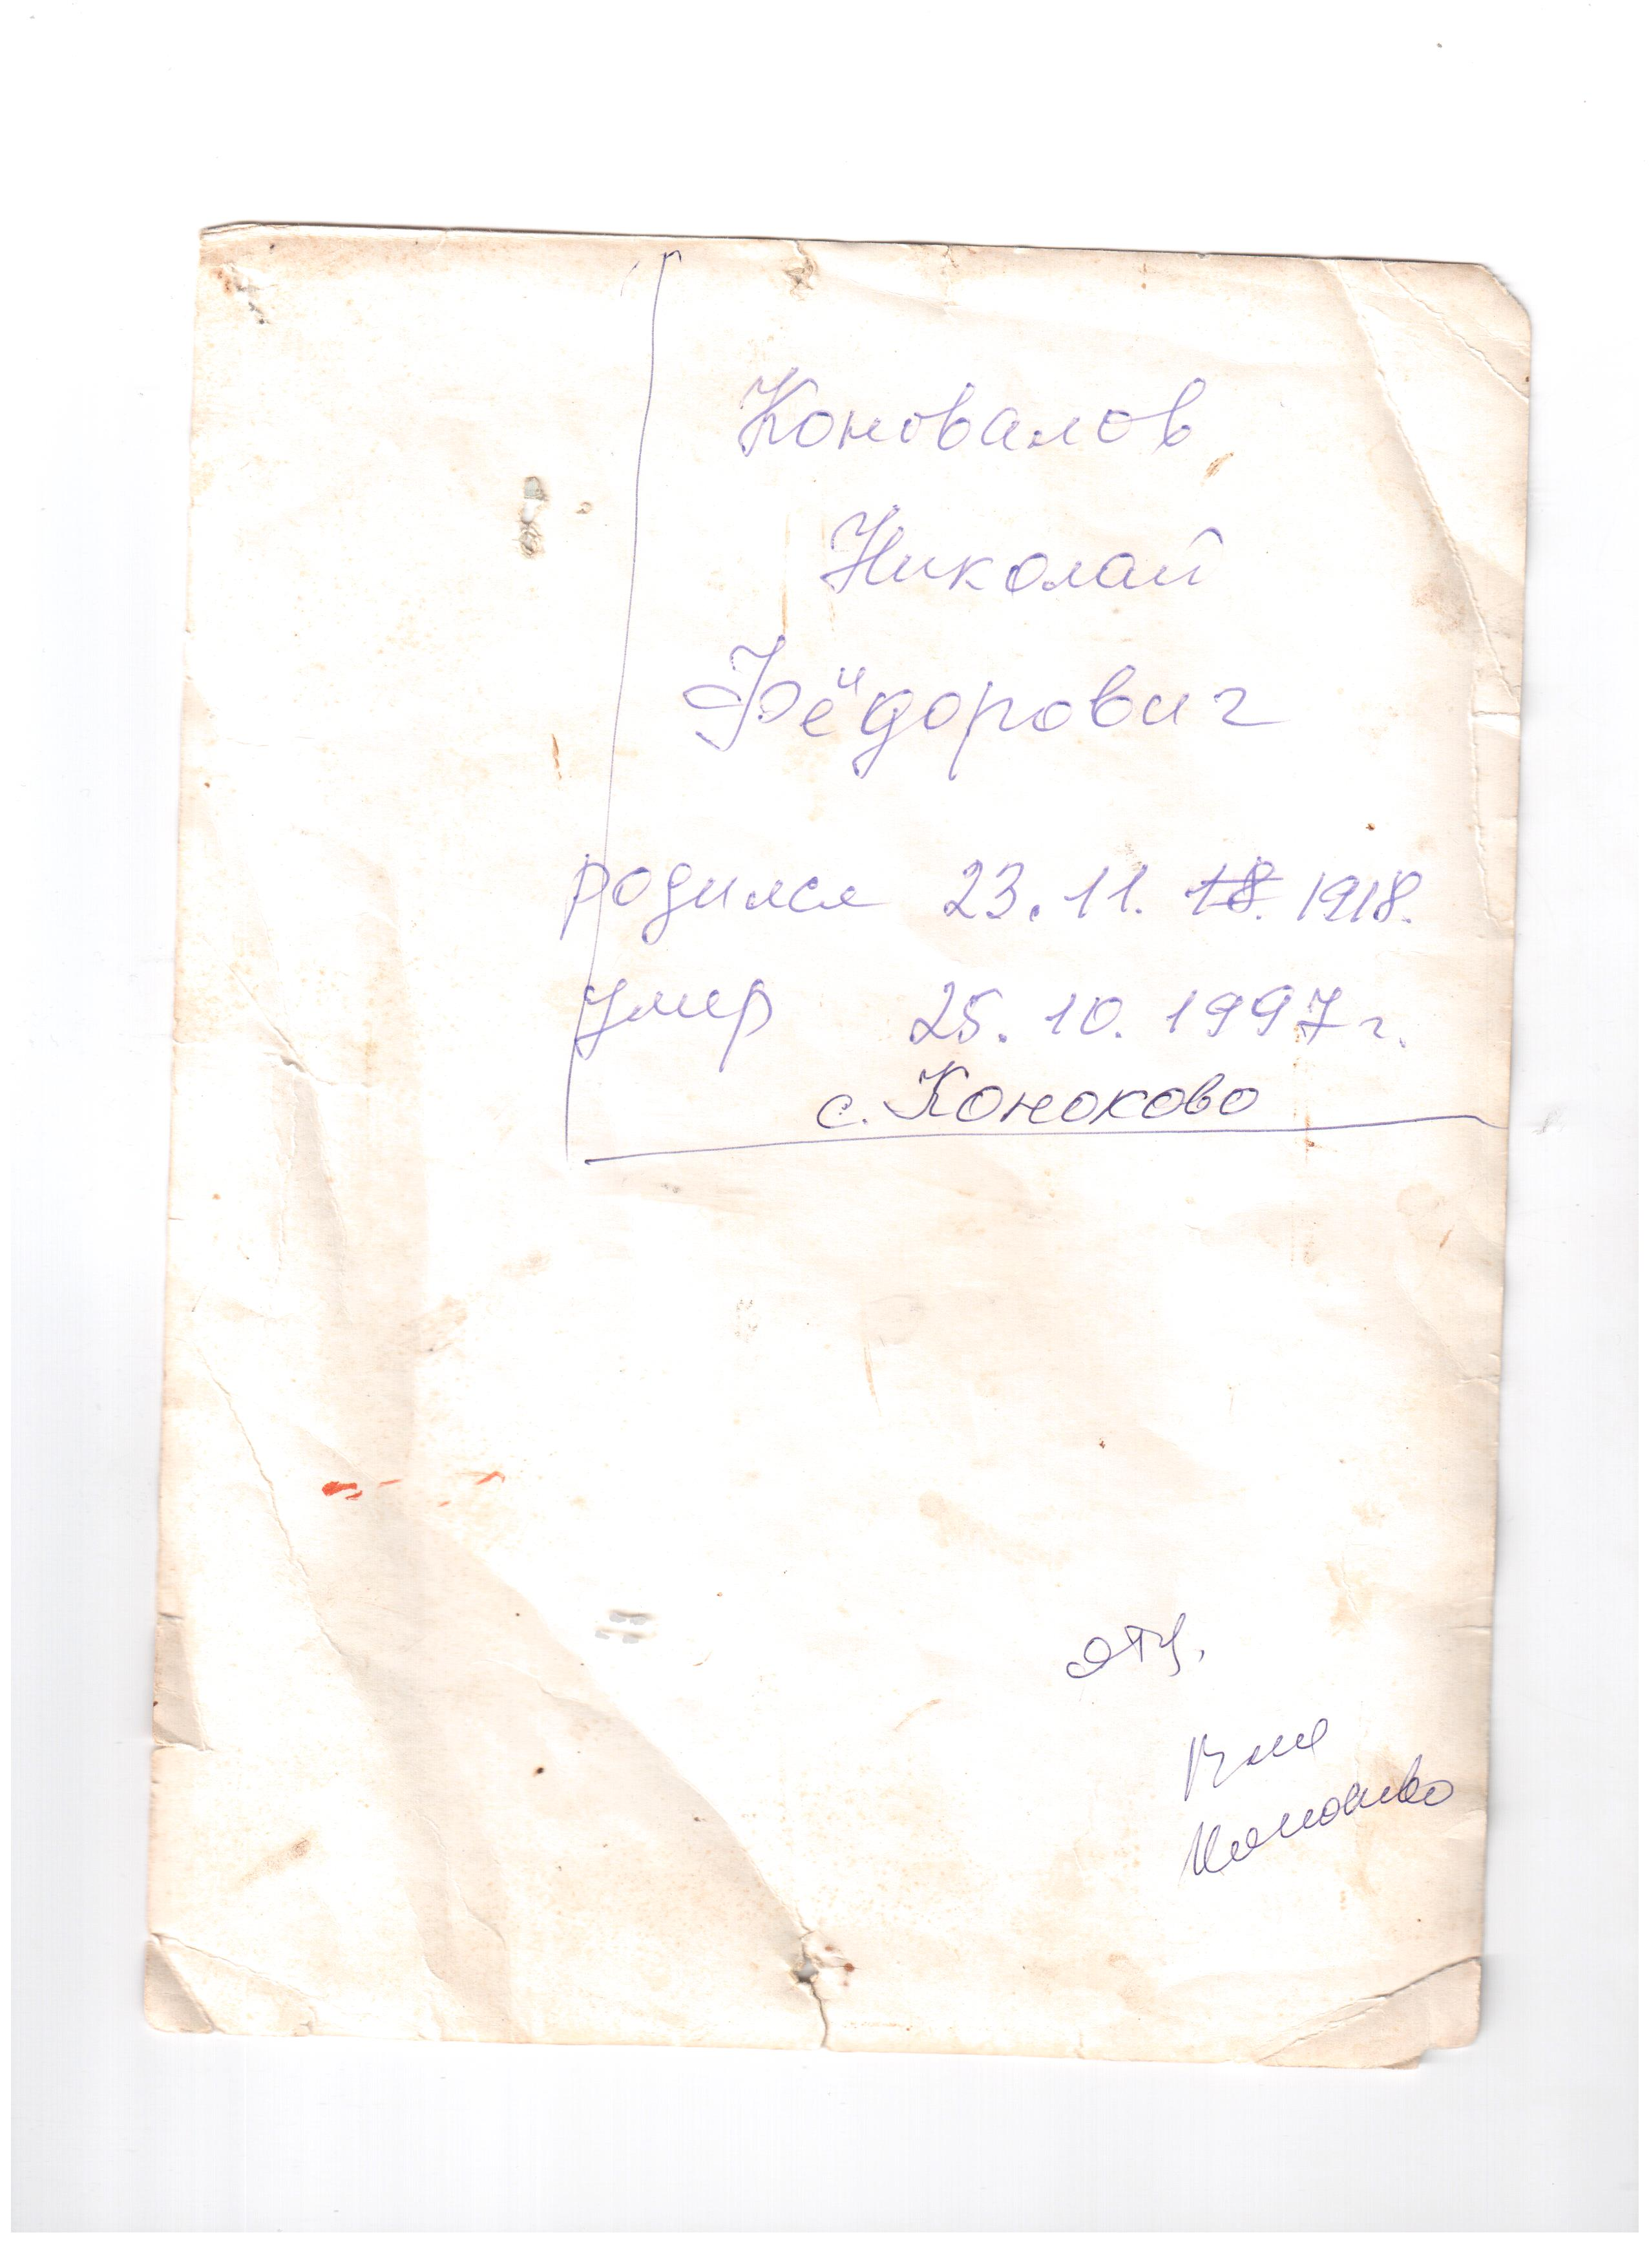 Коновалов
Николай
Фёдорович
родился 23.11. 18. 1918.
умер 25.10.1997г.
с. Коноково